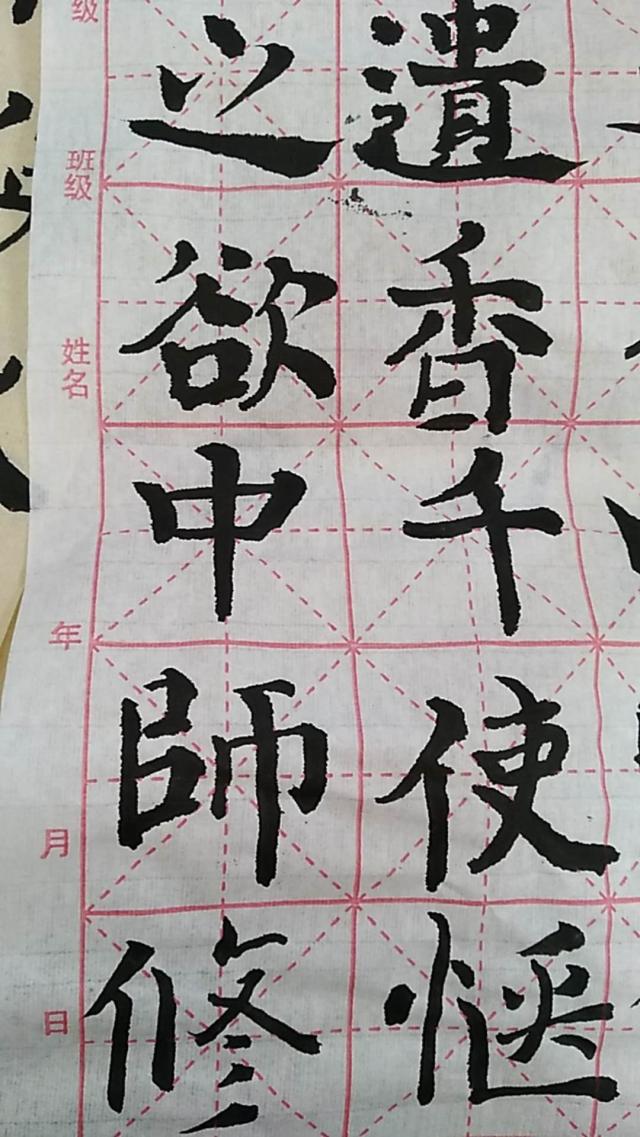 遺香千使惬
之欲中師修
级
班级
姓名
年
月
日